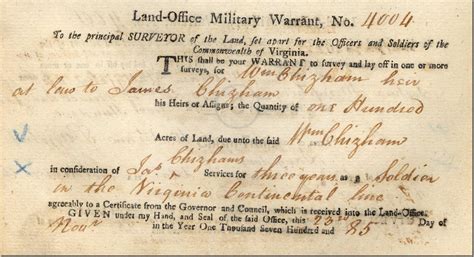 Land-Office Military Warrant, No. 4004
To the principal SURVEYOR of the Land, set apart for the Officers and Soldiers of the
Commonwealth of Virginia.
THIS shall be your WARRANT to survey and lay off in one or more
surveys, for Wm Chizham heir
at law to James Chizham
his Heirs or Assigns; the Quantity of one Hundred
Acres of Land, due unto the said Wm Chizham
in consideration of Jas Chizhams Services for three years as a Soldier
in the Virginia Continental line
agreeably to a Certificate from the Governor and Council, which is received into the Land-Office.
GIVEN under my Hand, and Seal of the said Office, this 23rd Day of
Novr in the Year One Thousand Seven Hundred and 85